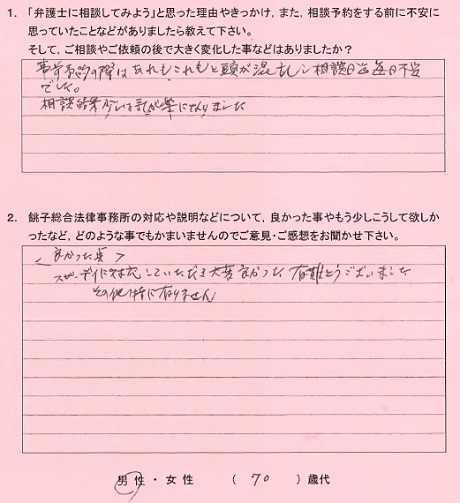 1．「弁護士に相談してみよう」と思った理由やきっかけ，また，相談予約をする前に不安に
思っていたことなどがありましたら教えて下さい。
そして，ご相談やご依頼の後で大きく変化した事などはありましたか？
事前予約の際はあれもこれもと頭が混乱し相談日迄毎日不安
でした。
相談結果少しは気が楽になりました
2．銚子総合法律事務所の対応や説明などについて，良かった事やもう少しこうして欲しか
ったなど，どのような事でもかまいませんのでご意見・ご感想をお聞かせ下さい。
＜良かった点＞
スピーディに対応していただき大変良かった 有難とうございました
その他特に有りません
男 性 ・ 女 性 （ 70 ）歳代